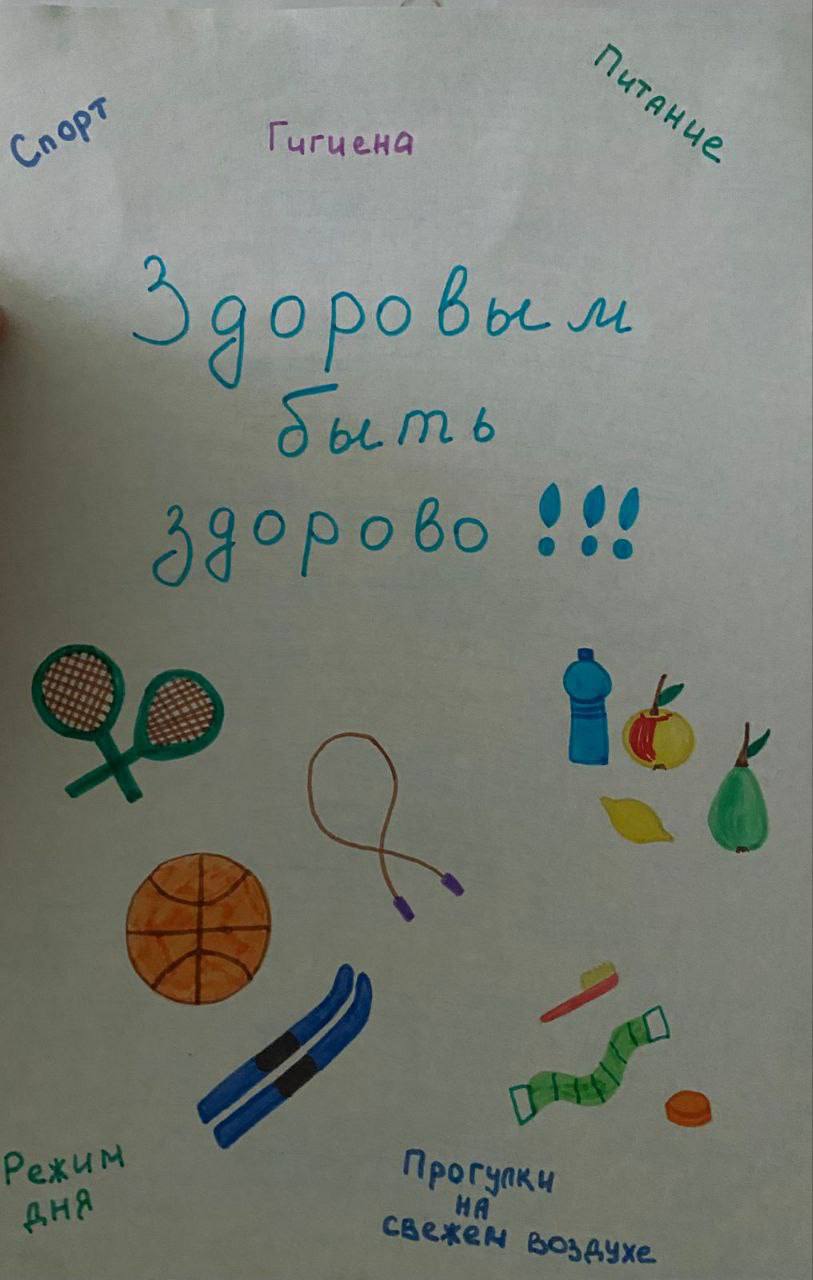 Спорт
Гигиена
Питание
Здоровым
быть
здорово !!!
Режим
дня
Прогулки
на
свежем воздухе